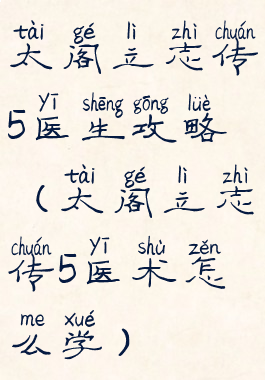 tài gé lì zhì chuán
太阁立志传
Yī shēng gōng lüè
5医生攻略
tài gé lì zhì
(太阁立志
chuán Yī shù zěn
传5医术怎
me xué
么学)